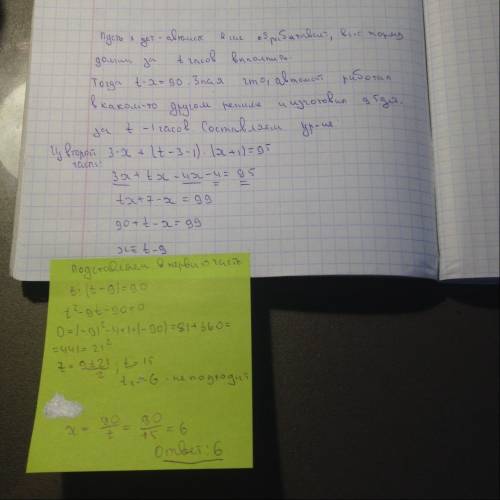 Пусть x дет-автомат в час обрабатывает, а всю норму
должен за t часов выполнить.
Тогда t·x=90. Зная что, автомат работал
в каком-то другом режиме и изготовил 95 дет.
за t-1 часов Составляем ур-ие.
Из второй части: 3·x + (t-3-1)·(x+1)=95
3x+tx-4x-4=95
tx+t-x=99
90+t-x=99
x=t-9
Подставляем в первую часть
t·(t-9)=90
t²-9t-90=0
D=(-9)²-4·1·(-90)=81+360=
=441=21²
t=9±21/2; t=15
t₂=-6-не подходит
x=90/t=90/15=6
Ответ: 6